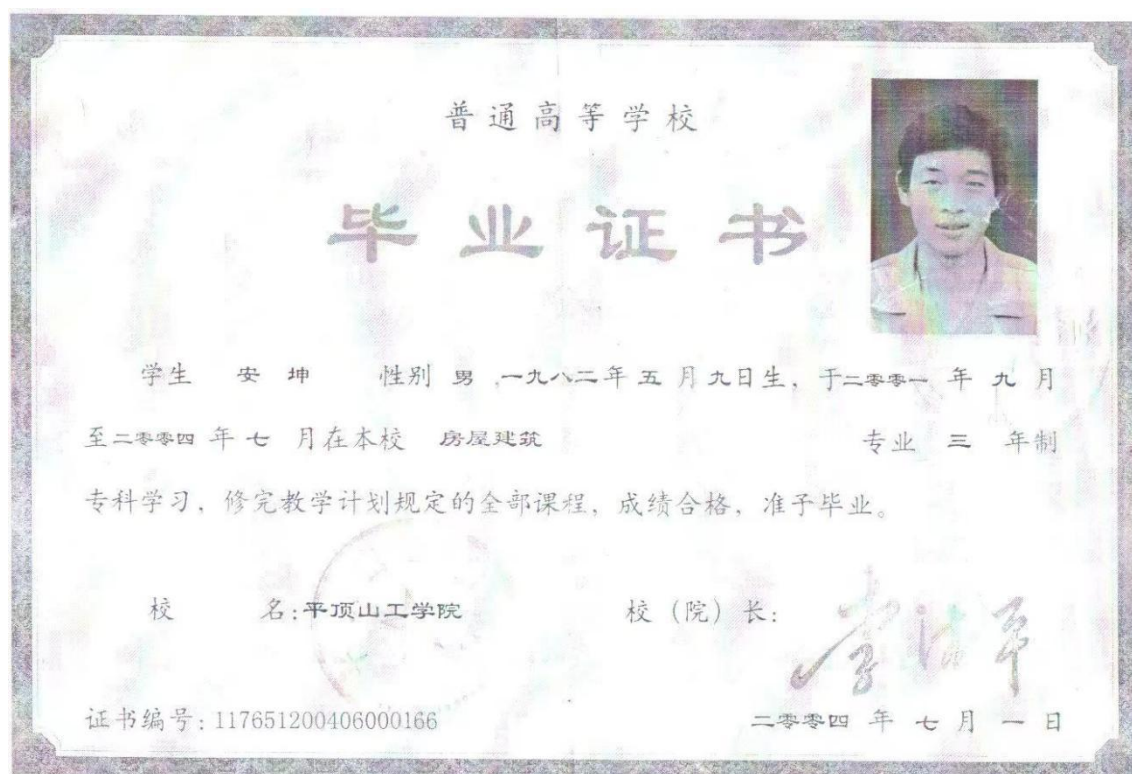 普通高等学校
毕业证书
学生 安坤 性别 男,一九八二年五月九日生,于二零零一年九月
至二零零四年七月在本校 房屋建筑 专业 三 年制
专科学习,修完教学计划规定的全部课程,成绩合格,准予毕业。
校 名:平顶山工学院 校(院)长:
证书编号:117651200406000166 二零零四年七月一日